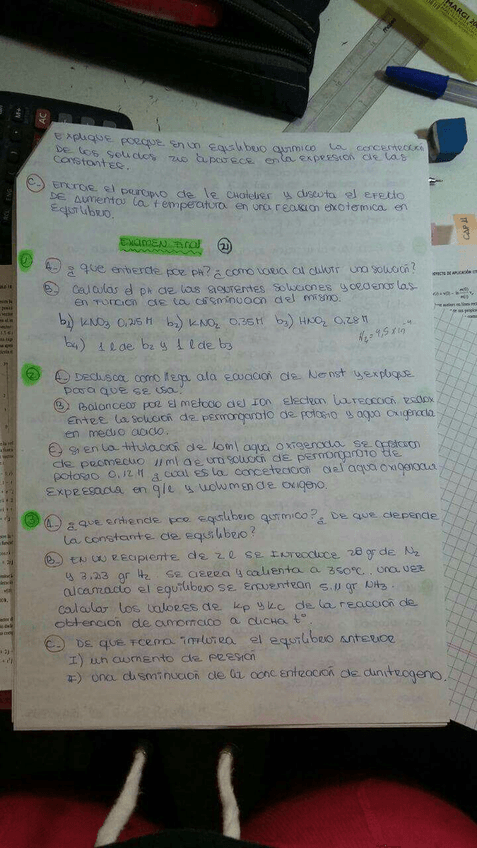 EXPLIQUE PORQUE EN UN EQUILIBRIO QUIMICO LA CONCENTRACION
DE LOS SOLIDOS NO APARECE EN LA EXPRESION DE LAS
CONSTANTES.
C- ENUNCIE EL PRINCIPIO DE LE CHATELIER Y DISCUTA EL EFECTO
DE AUMENTAR LA TEMPERATURA EN UNA REACCION EXOTERMICA EN
EQUILIBRIO.
EXAMEN FINAL 21
1 A- ¿QUE ENTIENDE POR PH? ¿COMO VARIA AL DILUIR UNA SOLUCION?
B- CALCULAR EL PH DE LAS SIGUIENTES SOLUCIONES Y ORDENARLAS
EN FUNCION DE LA DISMINUCION DEL MISMO.
b1) KNO3 0,25M b2) KNO2 0,35M b3) HNO2 0,28M
b4) 1 l de b2 y 1 l de b3
2 A- DEDUSCA COMO LLEGA A LA ECUACION DE NERNST Y EXPLIQUE
PARA QUE SE USA?
B- BALANCEAR POR EL METODO DEL ION ELECTRON LA REACCION REDOX
ENTRE LA SOLUCION DE PERMANGANATO DE POTASIO Y AGUA OXIGENADA
EN MEDIO ACIDO.
C- SI EN LA TITULACION DE 10ml AGUA OXIGENADA SE GASTARON
DE PROMEDIO 11 ml DE UNA SOLUCION DE PERMANGANATO DE
POTASIO 0,12 M ¿CUAL ES LA CONCETRACION DEL AGUA OXIGENADA
EXPRESADA EN g/l Y VOLUMEN DE OXIGENO.
3 A- ¿QUE ENTIENDE POR EQUILIBRIO QUIMICO? ¿DE QUE DEPENDE
LA CONSTANTE DE EQUILIBRIO?
B- EN UN RECIPIENTE DE 2 l SE INTRODUCE 28 gr DE N2
Y 3,23 gr H2. SE CIERRA Y CALIENTA A 350°C, UNA VEZ
ALCANZADO EL EQUILIBRIO SE ENCUENTRAN 5,11 gr NH3.
CALCULAR LOS VALORES DE KP Y KC DE LA REACCION DE
OBTENCION DE AMONIACO A DICHA t°
C- DE QUE FORMA INFLUIRIA EL EQUILIBRIO ANTERIOR
I) UN AUMENTO DE PRESION
II) UNA DISMINUCION DE LA CONCENTRACION DE DINITROGENO.